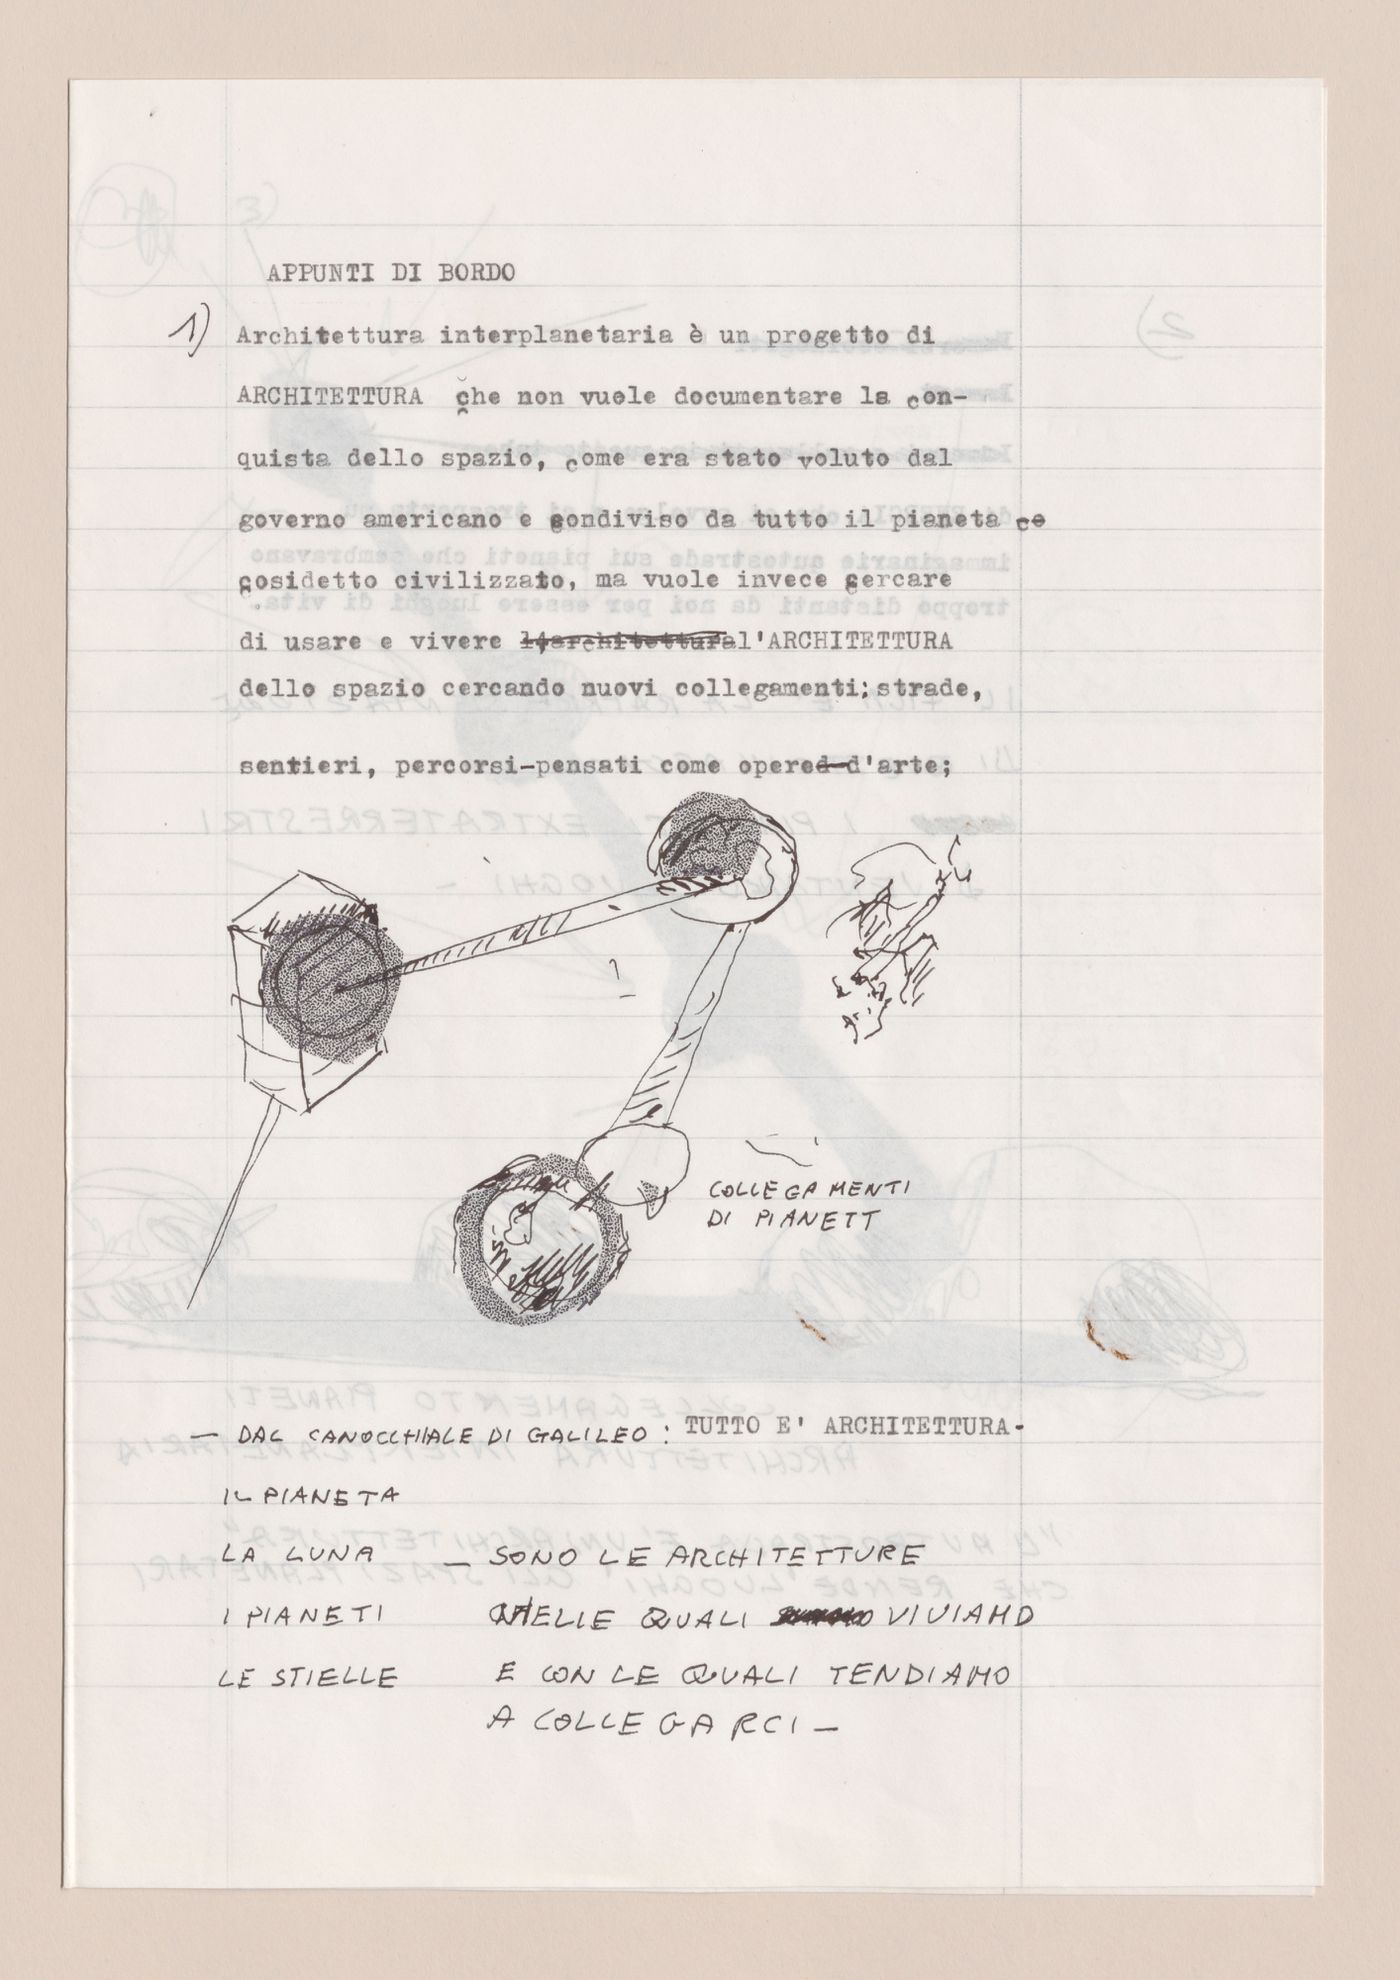 APPUNTI DI BORDO
1) Architettura interplanetaria è un progetto di
ARCHITETTURA che non vuole documentare la con-
quista dello spazio, come era stato voluto dal
governo americano e condiviso da tutto il pianeta ce
cosidetto civilizzato, ma vuole invece cercare
di usare e vivere l'architettural'ARCHITETTURA
dello spazio cercando nuovi collegamenti; strade,
sentieri, percorsi-pensati come opered-d'arte;
COLLEGAMENTI
DI PIANETI
— DAL CANOCCHIALE DI GALILEO : TUTTO E' ARCHITETTURA-
IL PIANETA
LA LUNA — SONO LE ARCHITETTURE
I PIANETI NELLE QUALI VIVIAMO
LE STELLE E CON LE QUALI TENDIAMO
A COLLEGARCI —